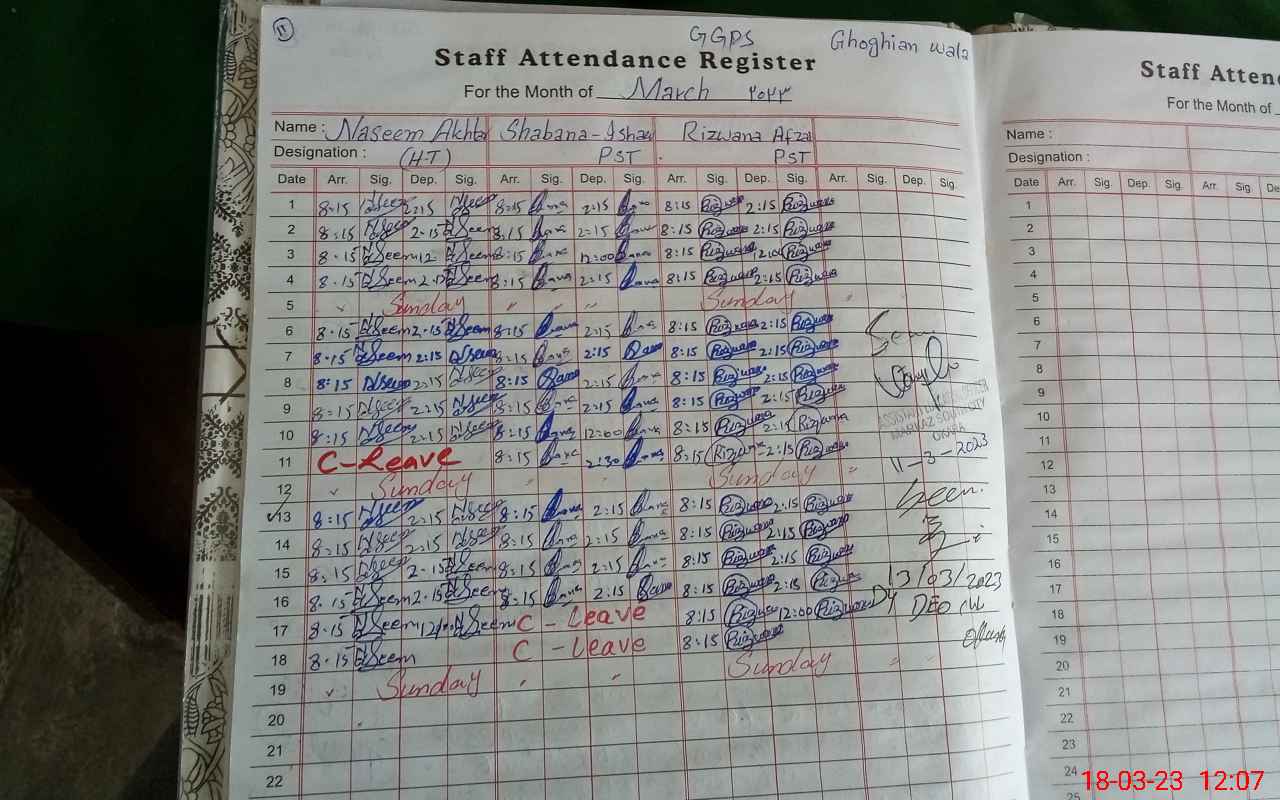 11
GGPS Ghoghian wala
Staff Attendance Register
For the Month of March ٢٠٢٣
Name : Naseem Akhtar Shabana-Ishaq Rizwana Afzal
Designation : (H-T) PST. PST
Date Arr. Sig. Dep. Sig. Arr. Sig. Dep. Sig. Arr. Sig. Dep. Sig. Arr. Sig. Dep. Sig.
1 8:15 NSeem 2:15 NSeem 8:15 2:15 8:15 Rizwana 2:15 Rizwana
2 8:15 NSeem 2:15 NSeem 8:15 2:15 8:15 Rizwana 2:15 Rizwana
3 8:15 NSeem 12 NSeem 8:15 12:00 8:15 Rizwana 12:00 Rizwana
4 8:15 NSeem 2:15 NSeem 8:15 2:15 8:15 Rizwana 2:15 Rizwana
5 Sunday Sunday
6 8:15 NSeem 2:15 NSeem 8:15 2:15 8:15 Rizwana 2:15 Rizwana
7 8:15 NSeem 2:15 NSeem 8:15 2:15 8:15 Rizwana 2:15 Rizwana
8 8:15 NSeem 2:15 NSeem 8:15 2:15 8:15 Rizwana 2:15 Rizwana
9 8:15 NSeem 2:15 NSeem 8:15 2:15 8:15 Rizwana 2:15 Rizwana
10 8:15 NSeem 2:15 NSeem 8:15 12:00 8:15 Rizwana 2:15 Rizwana
11 C-Leave 8:15 2:30 8:15 Rizwana 2:15 Rizwana
12 Sunday Sunday
13 8:15 NSeem 2:15 NSeem 8:15 2:15 8:15 Rizwana 2:15 Rizwana
14 8:15 NSeem 2:15 NSeem 8:15 2:15 8:15 Rizwana 2:15 Rizwana
15 8:15 NSeem 2:15 NSeem 8:15 2:15 8:15 Rizwana 2:15 Rizwana
16 8:15 NSeem 2:15 NSeem 8:15 2:15 8:15 Rizwana 2:15 Rizwana
17 8:15 NSeem 12/00 NSeem C - Leave 8:15 Rizwana 12:00 Rizwana
18 8:15 NSeem C - Leave 8:15 Rizwana
19 Sunday Sunday
20
21
22
Seen
MARKAZ SOUTH CITY
OKARA
11-3-2023
Seen.
13/03/2023
Dy DEO (W
Staff Atten
For the Month of
Name :
Designation :
Date Arr. Sig. Dep. Sig. Arr. Sig. De
1
2
3
4
5
6
7
8
9
10
11
12
13
14
15
16
17
18
19
20
21
22
23
24
25
18-03-23 12:07